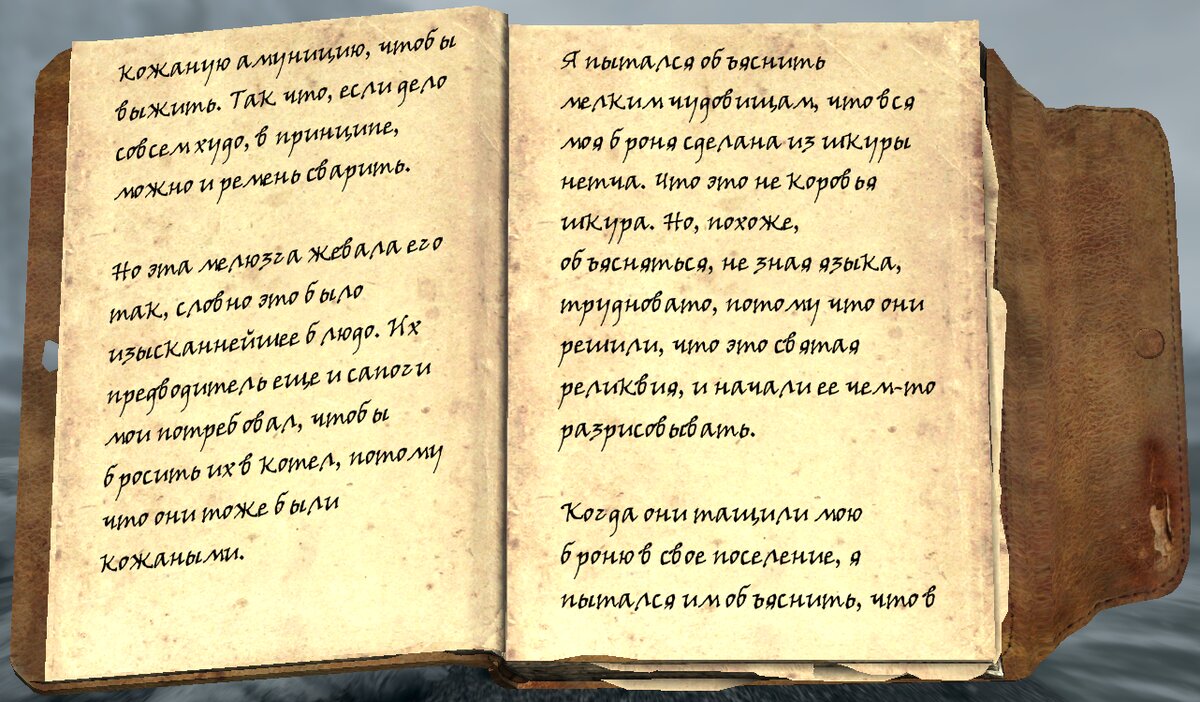 кожаную амуницию, чтобы
выжить. Так что, если дело
совсем худо, в принципе,
можно и ремень сварить.
Но эта мелюзга жевала его
так, словно это было
изысканнейшее блюдо. Их
предводитель еще и сапоги
мои потребовал, чтобы
бросить их в котел, потому
что они тоже были
кожаными.
Я пытался объяснить
мелким чудовищам, что вся
моя броня сделана из шкуры
нетча. Что это не коровья
шкура. Но, похоже,
объясняться, не зная языка,
трудновато, потому что они
решили, что это святая
реликвия, и начали ее чем-то
разрисовывать.
Когда они тащили мою
броню в свое поселение, я
пытался им объяснить, что в